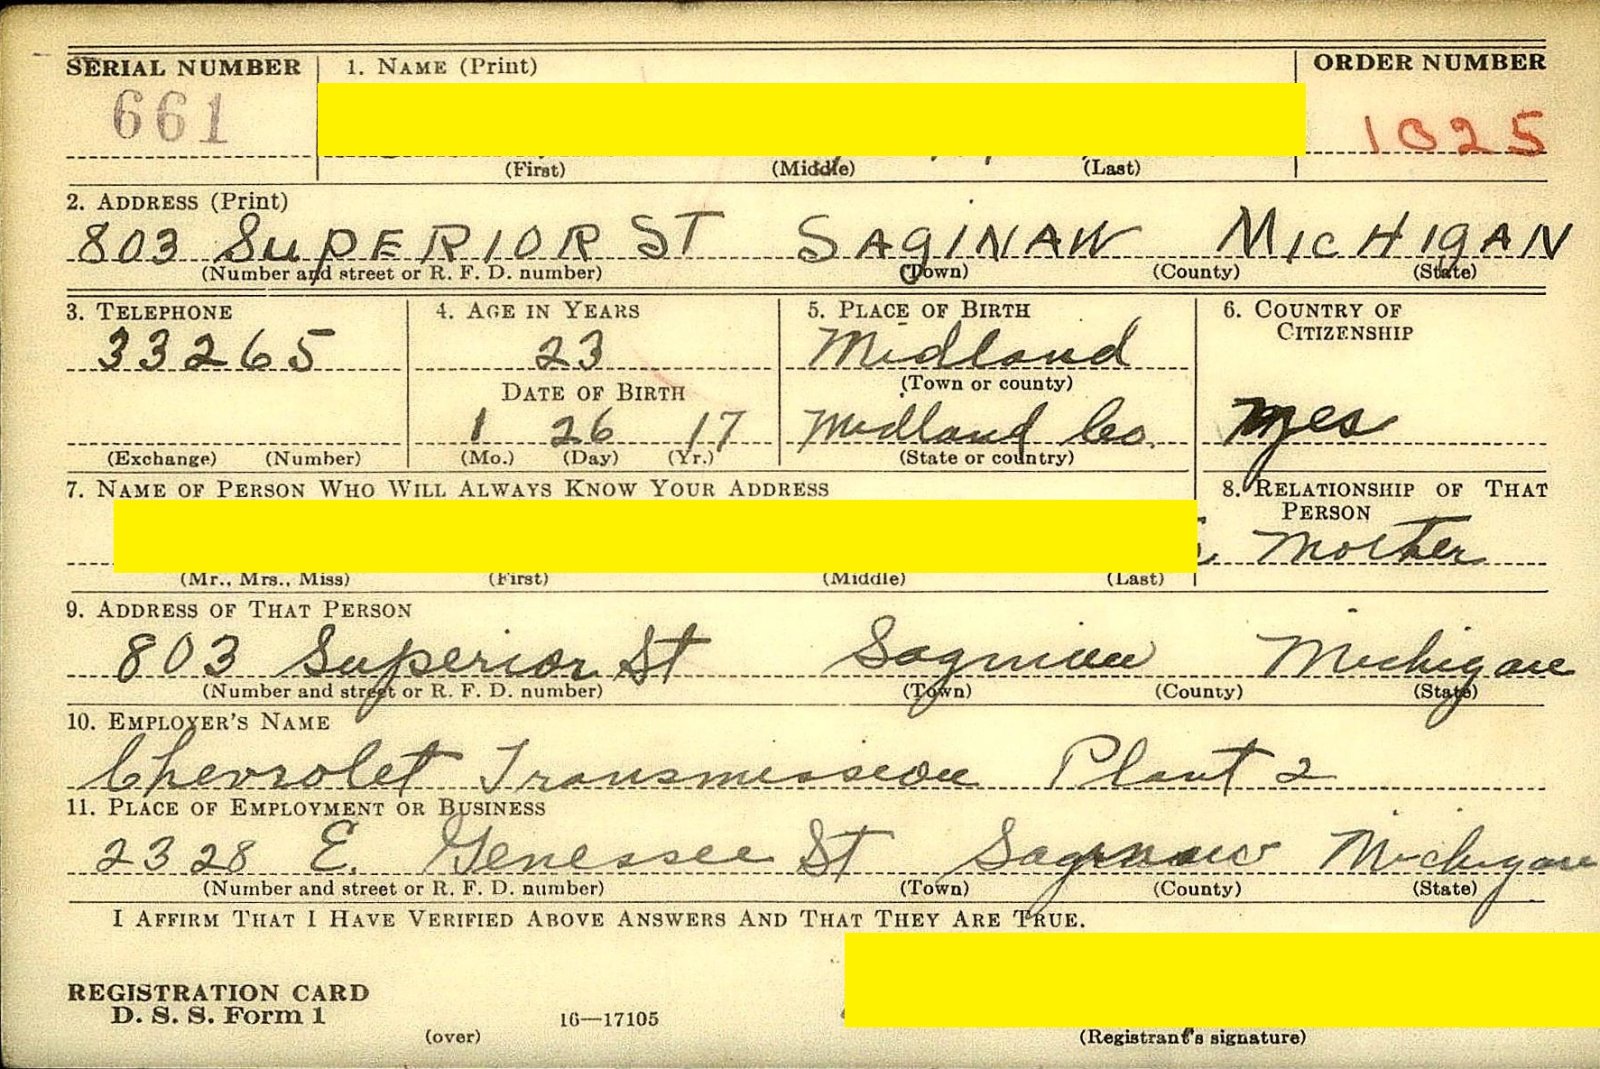 SERIAL NUMBER 1. NAME (Print) ORDER NUMBER
661 1025
(First) (Middle) (Last)
2. ADDRESS (Print)
803 SuPERIOR ST SAGINAW MICHIGAN
(Number and street or R. F. D. number) (Town) (County) (State)
3. TELEPHONE 4. AGE IN YEARS 5. PLACE OF BIRTH 6. COUNTRY OF
CITIZENSHIP
33265 23 Midland
(Town or county)
DATE OF BIRTH
1 26 17 Midland Co. yes
(Exchange) (Number) (Mo.) (Day) (Yr.) (State or country)
7. NAME OF PERSON WHO WILL ALWAYS KNOW YOUR ADDRESS 8. RELATIONSHIP OF THAT
PERSON
Mother
(Mr., Mrs., Miss) (First) (Middle) (Last)
9. ADDRESS OF THAT PERSON
803 Superior St Saginaw Michigan
(Number and street or R. F. D. number) (Town) (County) (State)
10. EMPLOYER'S NAME
Chevrolet Transmission Plant 2
11. PLACE OF EMPLOYMENT OR BUSINESS
2328 E. Genessee St Saginaw Michigan
(Number and street or R. F. D. number) (Town) (County) (State)
I AFFIRM THAT I HAVE VERIFIED ABOVE ANSWERS AND THAT THEY ARE TRUE.
REGISTRATION CARD
D. S. S. Form 1
(over) 16—17105 (Registrant's signature)